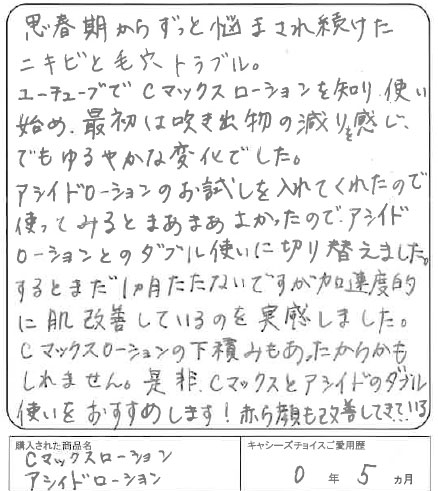 思春期からずっと悩まされ続けた
ニキビと毛穴トラブル。
ユーチューブでCマックスローションを知り、使い
始め、最初は吹き出物の減りを感じ、
でもゆるやかな変化でした。
アシイドローションのお試しを入れてくれたので
使ってみるとまあまあよかったので、アシイド
ローションとのダブル使いに切り替えました。
するとまだ1ヵ月たたないですが加速度的
に肌改善しているのを実感しました。
Cマックスローションの下積みもあったからかも
しれません。是非、Cマックスとアシイドのダブル
使いをおすすめします!赤ら顔も改善してきている
購入された商品名
Cマックスローション
アシイドローション
キャシーズチョイスご愛用歴
0年5ヵ月